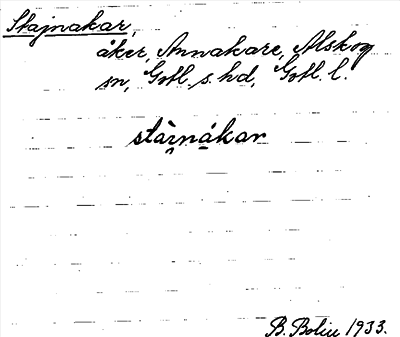 Stajnakar,
åker, Annakare, Alskog
sn, Gotl. s. hd, Gotl. l.
stàrnákar
B. Bolin 1933.